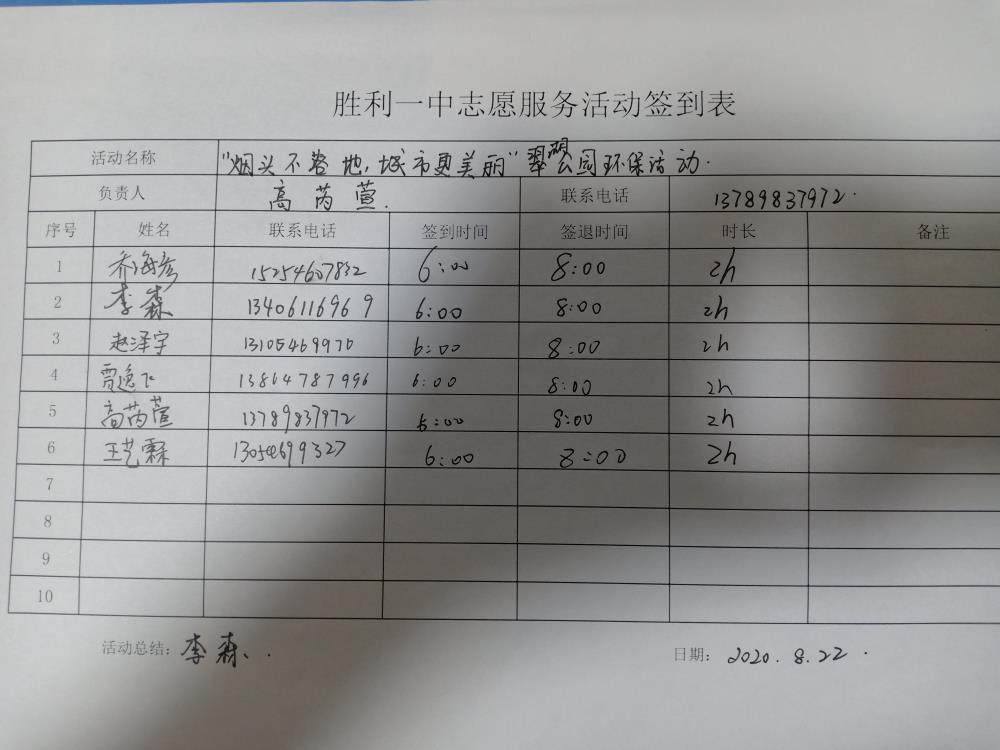 胜利一中志愿服务活动签到表
活动名称 "烟头不落地,城市更美丽"翠湖公园环保活动.
负责人 高芮萱. 联系电话 13789837972.
序号 姓名 联系电话 签到时间 签退时间 时长 备注
1 乔海彦 15254607832 6:00 8:00 2h
2 李森 13406116969 6:00 8:00 2h
3 赵泽宇 13105469970 6:00 8:00 2h
4 贾逸飞 13864787996 6:00 8:00 2h
5 高芮萱 13789837972 6:00 8:00 2h
6 王艺霖 13054699327 6:00 8:00 2h
7
8
9
10
活动总结: 李森. 日期: 2020.8.22.